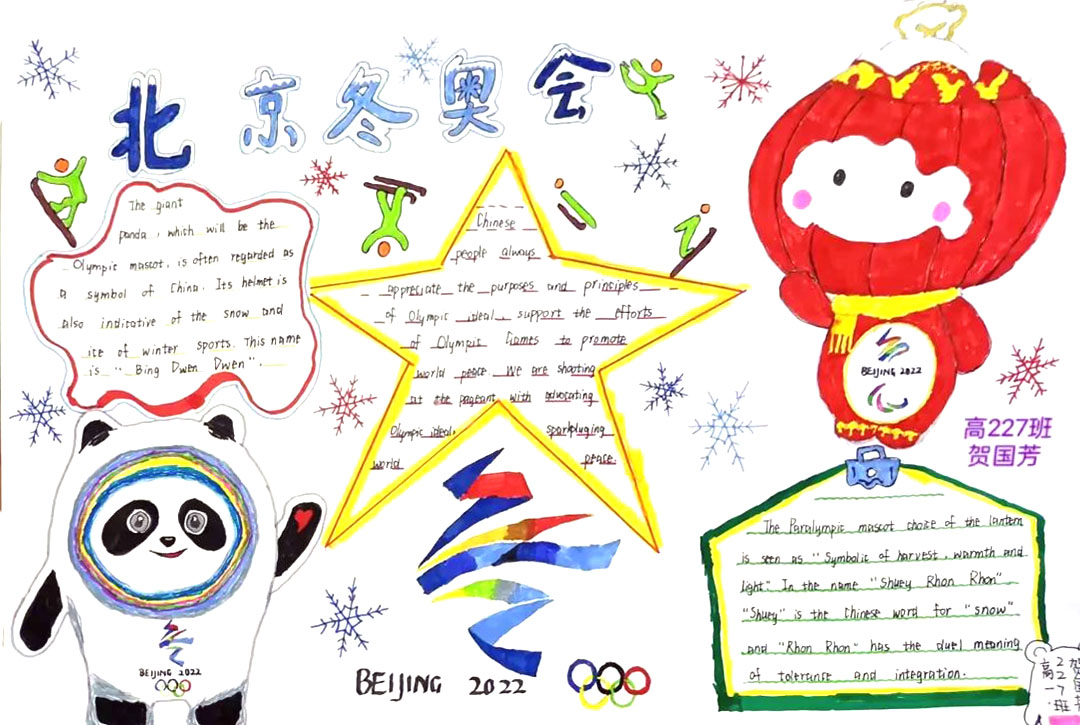 北京冬奥会
The giant
panda, which will be the
Olympic mascot, is often regarded as
a symbol of China. Its helmet is
also indicative of the snow and
ice of winter sports. This name
is "Bing Dwen Dwen".
Chinese
people always
appreciate the purposes and principles
of Olympic ideal, support the efforts
of Olympic Games to promote
world peace. We are shooting
at the pageant with advocating
Olympic ideal, sparkpluging
world peace.
BEIJING 2022
高227班
贺国芳
The Paralympic mascot choice of the lantern
is seen as "Symbolic of harvest, warmth and
light" In the name "Shuey Rhon Rhon"
"Shuey" is the Chinese word for "snow"
and "Rhon Rhon" has the duel meaning
of tolerance and integration.
BEIJING 2022
BEIJING 2022